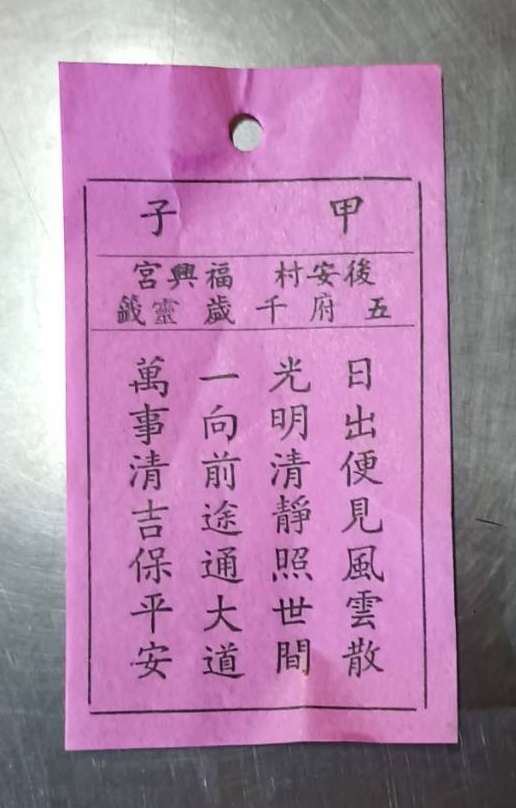 甲子
後安村 福興宮
五府千歲靈籤
日出便見風雲散
光明清靜照世間
一向前途通大道
萬事清吉保平安